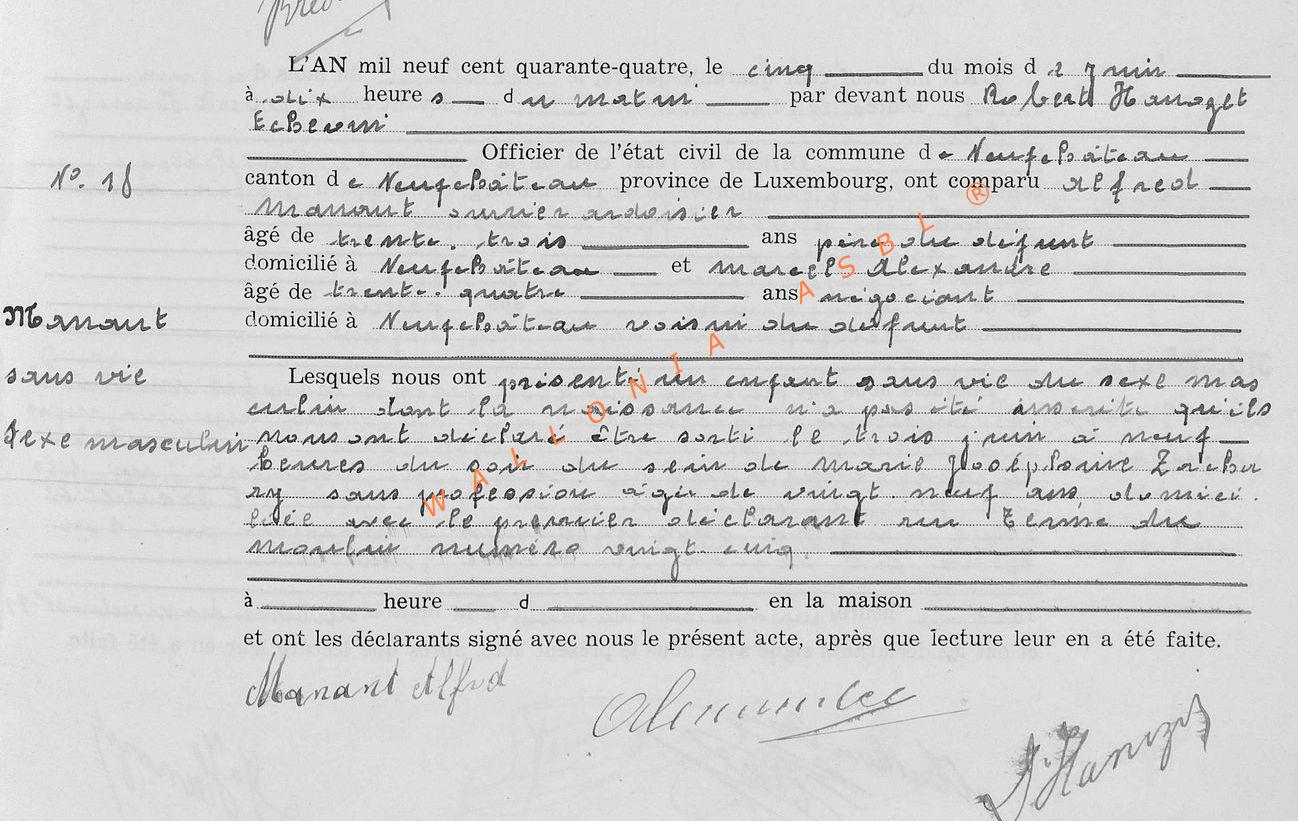 L'AN mil neuf cent quarante-quatre, le cinq du mois de juin
à dix heures du matin par devant nous Robert
Echevin
Officier de l'état civil de la commune de Neufchâteau
N°. 18
canton de Neufchâteau province de Luxembourg, ont comparu Alfred
Manant ouvrier ardoisier
âgé de trente-trois ans père du défunt
domicilié à Neufchâteau et Marcel Alexandre
âgé de trente-quatre ans négociant
Manant
domicilié à Neufchâteau voisin du défunt
sans vie
Lesquels nous ont présenté un enfant sans vie du sexe mas
culin dont la naissance n'a pas été inscrite qu'ils
sexe masculin
nous ont déclaré être sorti le trois juin à neuf
heures du soir du sein de Marie Joséphine Zachar
ry sans profession âgée de vingt-neuf ans domici
liée avec le premier déclarant rue Terme du
moulin numéro vingt-cinq
à heure d en la maison
et ont les déclarants signé avec nous le présent acte, après que lecture leur en a été faite.
Manant Alfred
WALLONIA ASBL ®